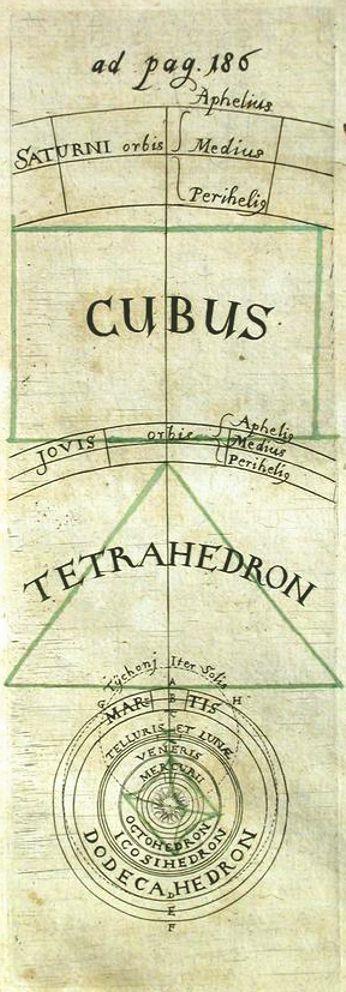 ad pag. 186
Aphelius
SATURNI orbis Medius
Perihelig
CUBUS
Aphelig
JOVIS orbis Medius
Perihelig
TETRAHEDRON
Tychonj Iter Solis
A
G MARS TIS H
B
C
TELLURIS ET LUNÆ
VENERIS
MERCURII
OCTOHEDRON
ICOSIHEDRON
DODECAHEDRON
D
E
F